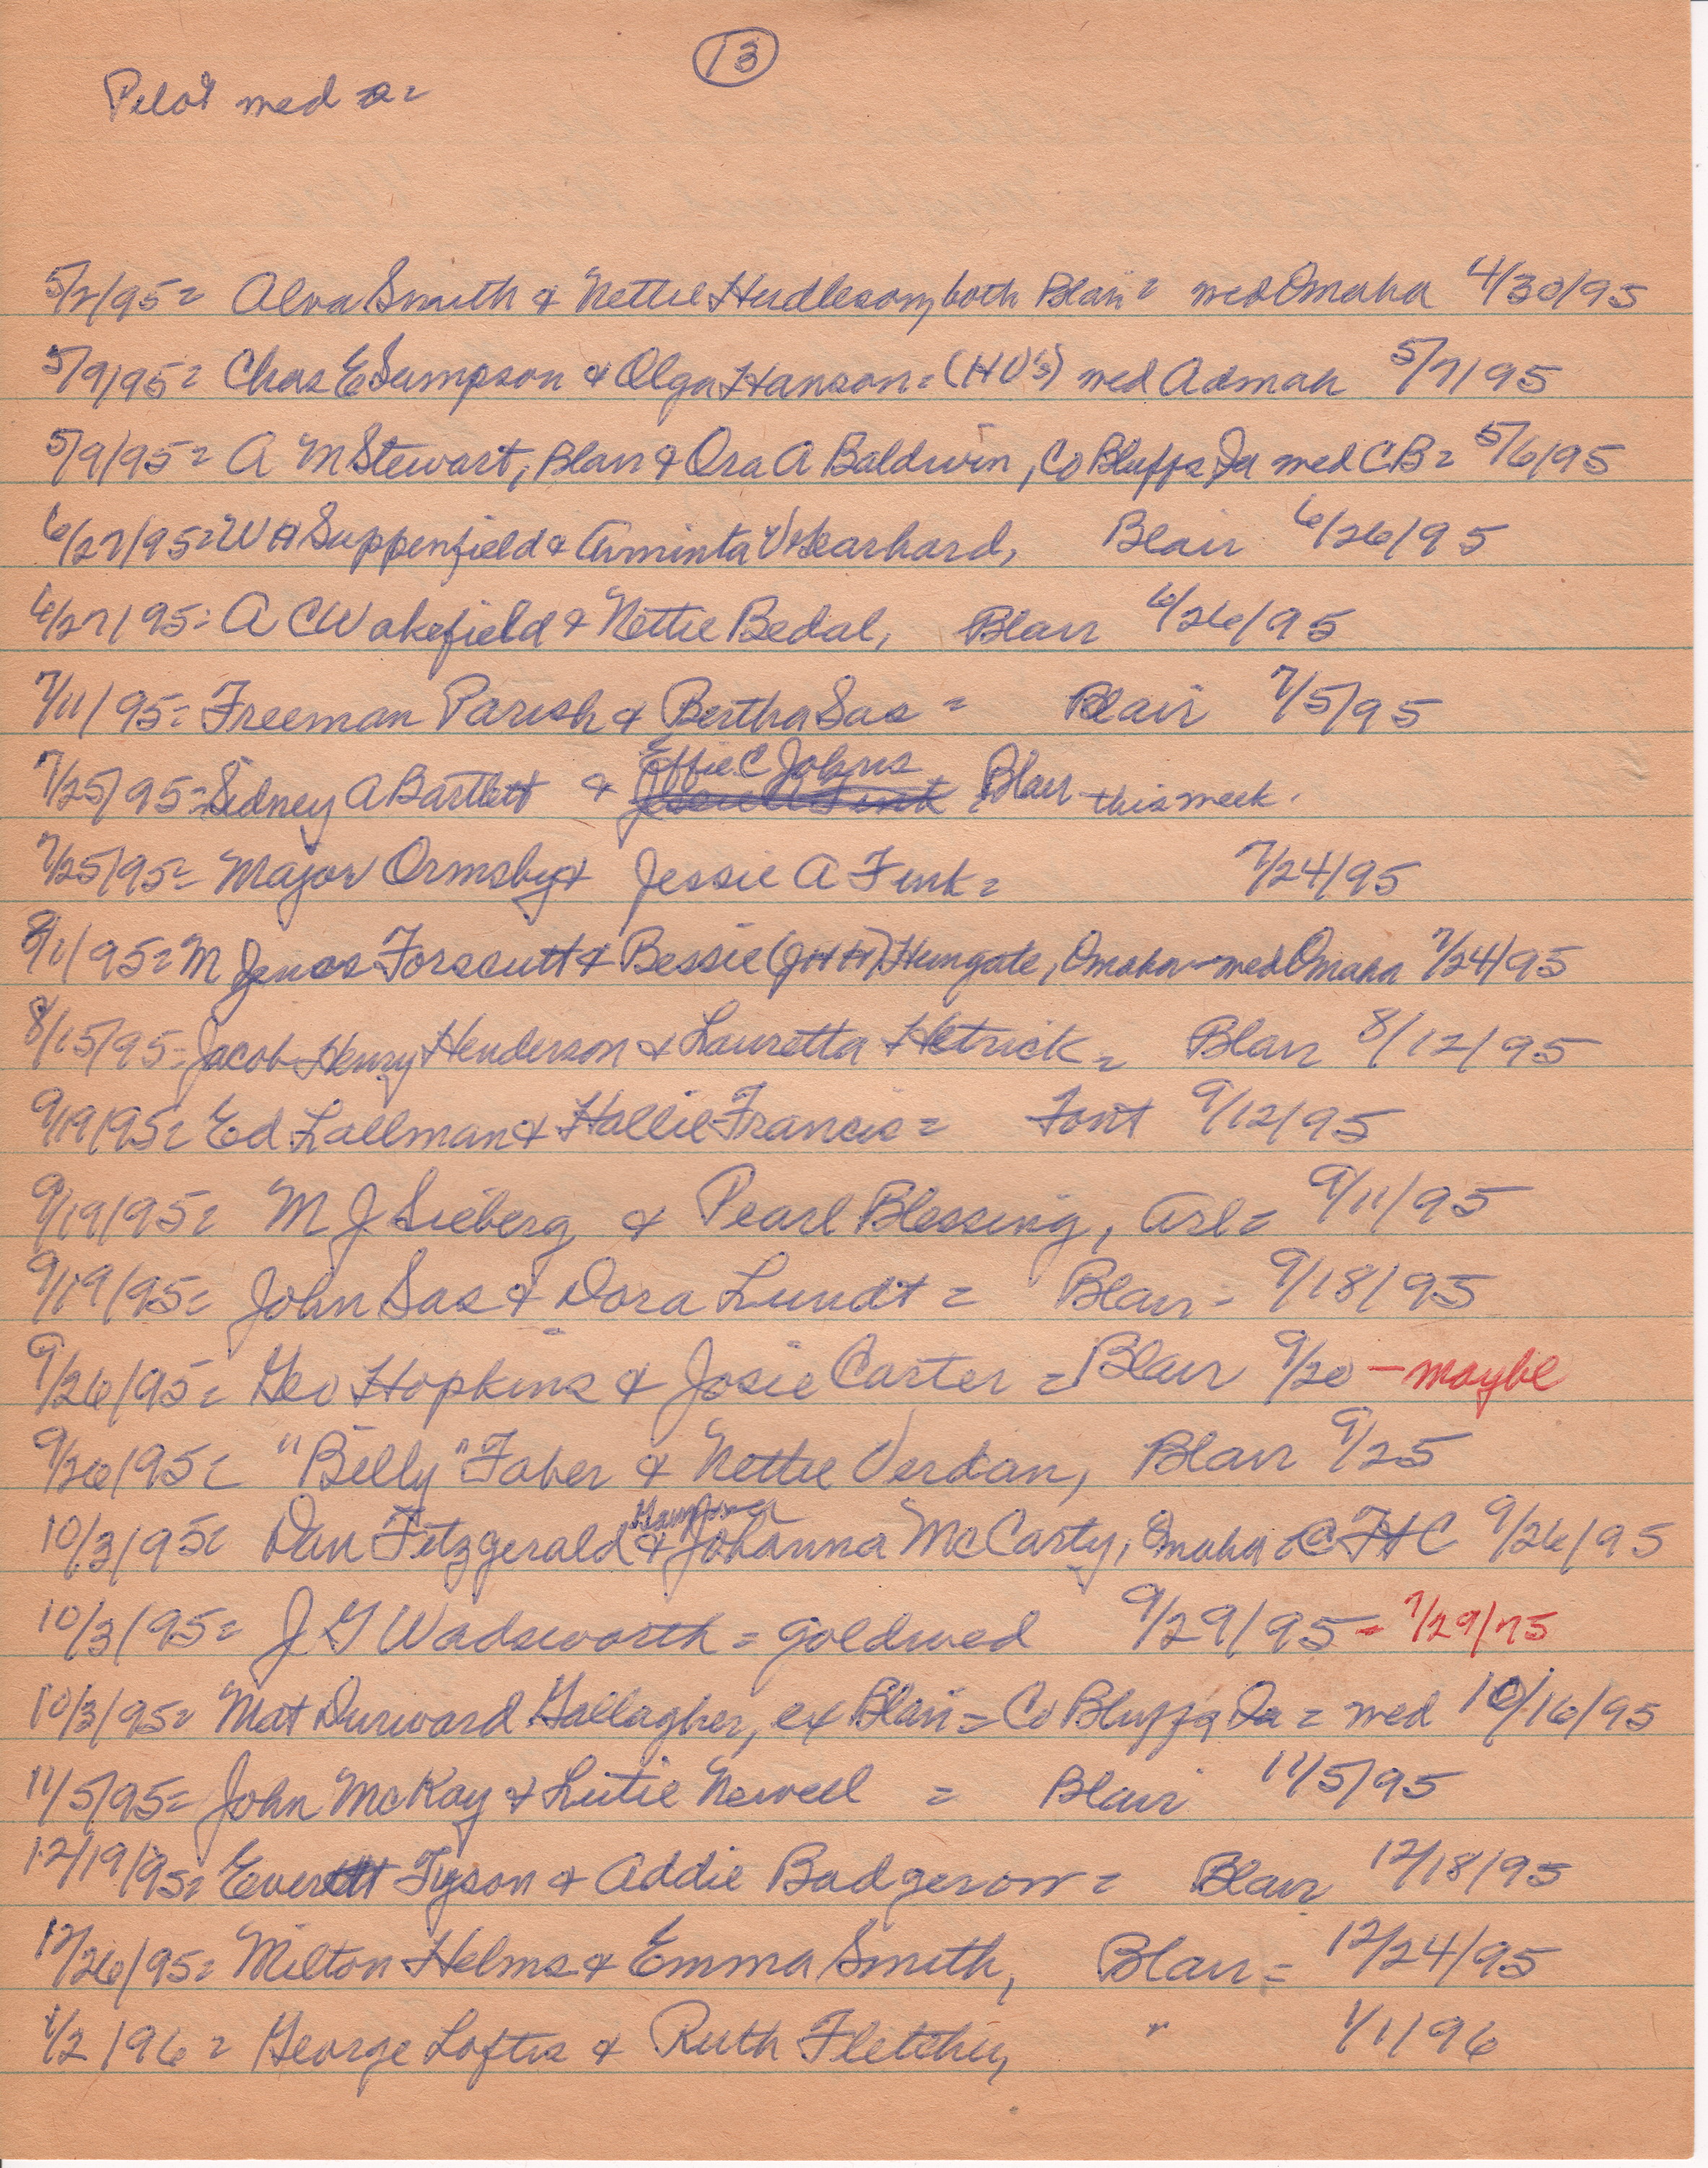 13
Pilot med =
5/2/95= Alva Smith & Nettie Hudleson, both Blair= wed Omaha 4/30/95
5/9/95= Chas E Sampson & Olga Hanson= (HU's) wed Admah 5/7/95
5/9/95= A M Stewart, Blair & Ora A Baldwin, Co Bluffs Ia wed CB= 5/6/95
6/27/95= W H Suppenfield & Arminta V Gearhard, Blair 6/26/95
6/27/95= A C Wakefield & Nettie Bedal, Blair 6/26/95
7/11/95= Freeman Parish & Bertha Sas = Blair 7/5/95
Effie C Johns
7/25/95= Sidney A Bartlett & Jessie A Fink Blair this week.
7/25/95= Major Ormsby & Jessie A Fink= 7/24/95
8/1/95= M James Forscutt & Bessie (JHH) Hungate, Omaha - wed Omaha 7/24/95
8/15/95= Jacob Henry Henderson & Lauretta Hetrick= Blair 8/12/95
9/19/95= Ed Lallman & Hallie Francis= Font 9/12/95
9/19/95= M J Sieberg & Pearl Blessing, Arl= 9/11/95
9/19/95= John Sas & Dora Lundt = Blair - 9/18/95
9/26/95= Geo Hopkins & Josie Carter = Blair 9/20 - maybe
9/26/95= "Billy" Faber & Nettie Verdan, Blair 9/25
10/3/95= Dan Fitzgerald & Johanna McCarty, Omaha @ FHC 9/26/95
10/3/95= J G Wadsworth = goldwed 9/29/95 = 9/29/75
10/3/95= Mat Durward Gallagher, ex Blair = Co Bluffs Ia = wed 10/16/95
11/5/95= John McKay & Lutie Newell = Blair 11/5/95
12/19/95= Everett Tyson & Addie Badgerow = Blair 12/18/95
12/26/95= Milton Helms & Emma Smith, Blair = 12/24/95
1/2/96 = George Loftis & Ruth Fletcher, " 1/1/96